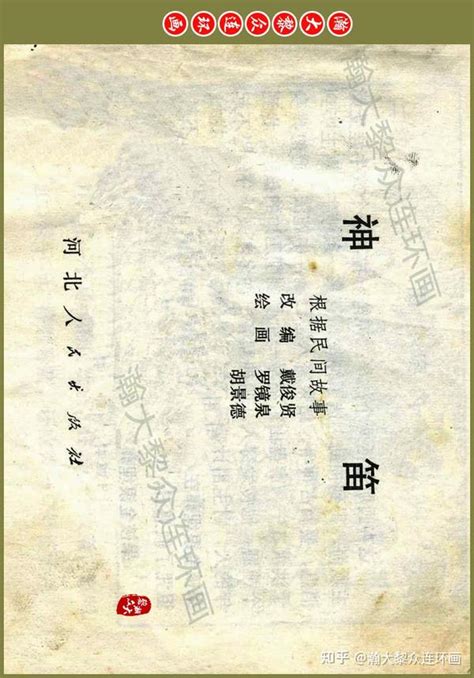 瀚大黎众连环画
神笛
根据民间故事
改编 戴俊贤
绘画 罗镜泉
胡景德
河北人民出版社
瀚大黎众连环画
瀚大黎众连环画
知乎 @瀚大黎众连环画